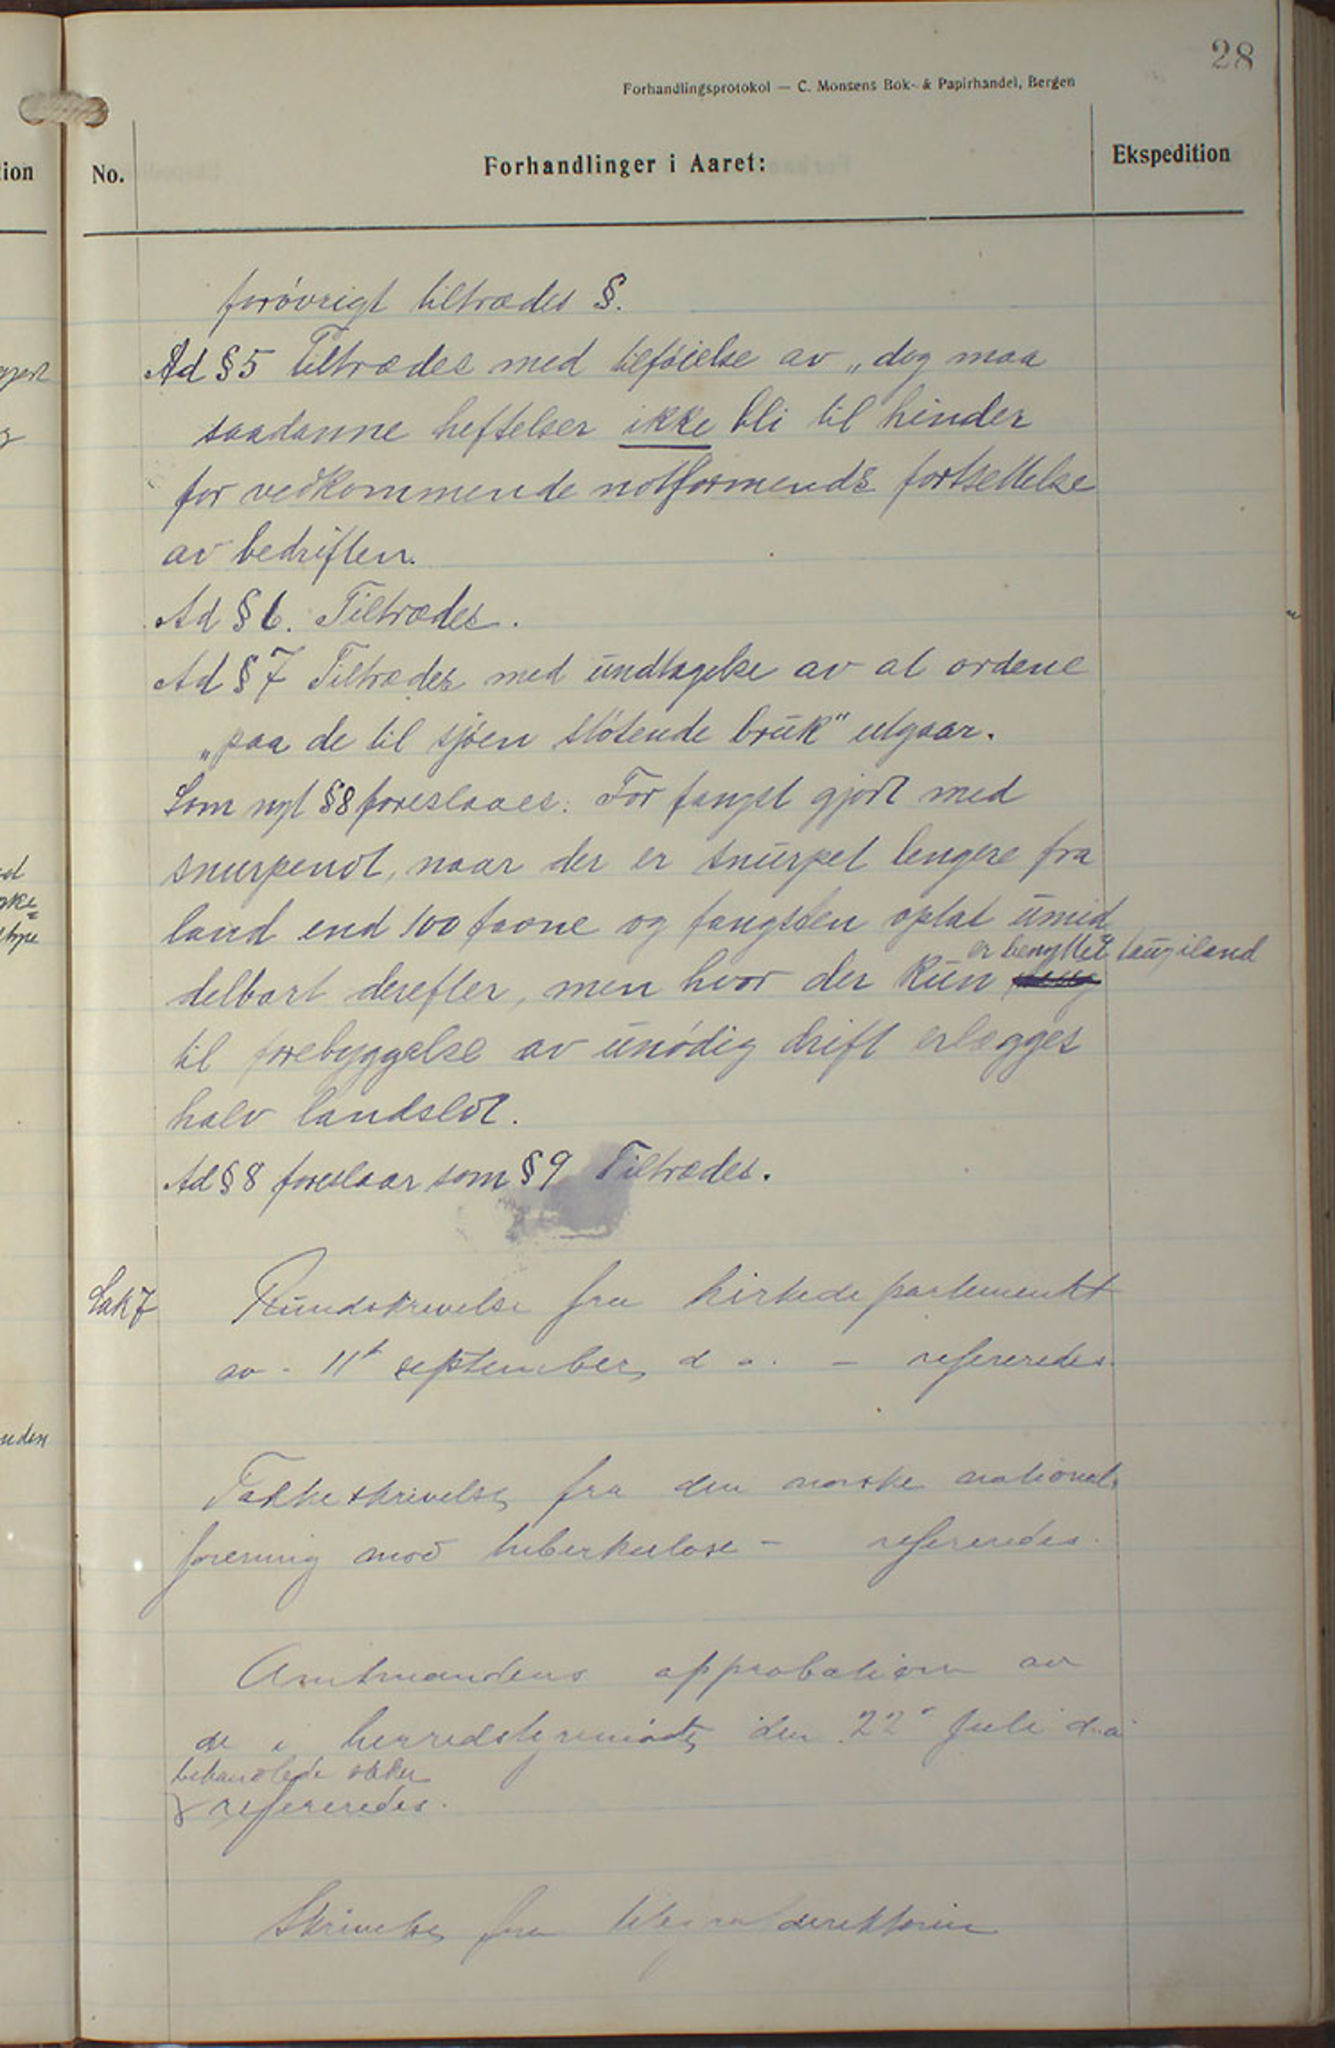 28
Forhandlingsprotokol — C. Monsens Bok- & Papirhandel, Bergen
No.
Forhandlinger i Aaret:
Ekspedition
forøvrigt tiltrædes §.
Ad § 5 Tiltrædes med tilføielse av „dog maa
saadanne heftelser ikke bli til hinder
for vedkommende notformends fortsettelse
av bedriften.
Ad § 6. Tiltrædes.
Ad § 7 Tiltrædes med undtagelse av at ordene
„paa de til sjøen støtende bruk" utgaar.
Som nyt § 8 foreslaaes: For fangst gjort med
snurpenot, naar der er snurpet lengere fra
land end 100 favne og fangsten optat umid
delbart derefter, men hvor der kun er benyttet taug iland
til forebyggelse av unødig drift erlægges
halv landslot.
Ad § 8 foreslaar som § 9 Tiltrædes.
Sak 7
Rundskrivelse fra kirkedepartementet
av - 11t september d. a. - refereredes.
Takkeskrivelse fra den norske national-
forening mod tuberkulose - refereredes.
Amtmandens approbation av
de i herredstyremøte den 22' juli d.a
behandlede saker
refereredes.
Skrivelse fra telegrafdirektøren